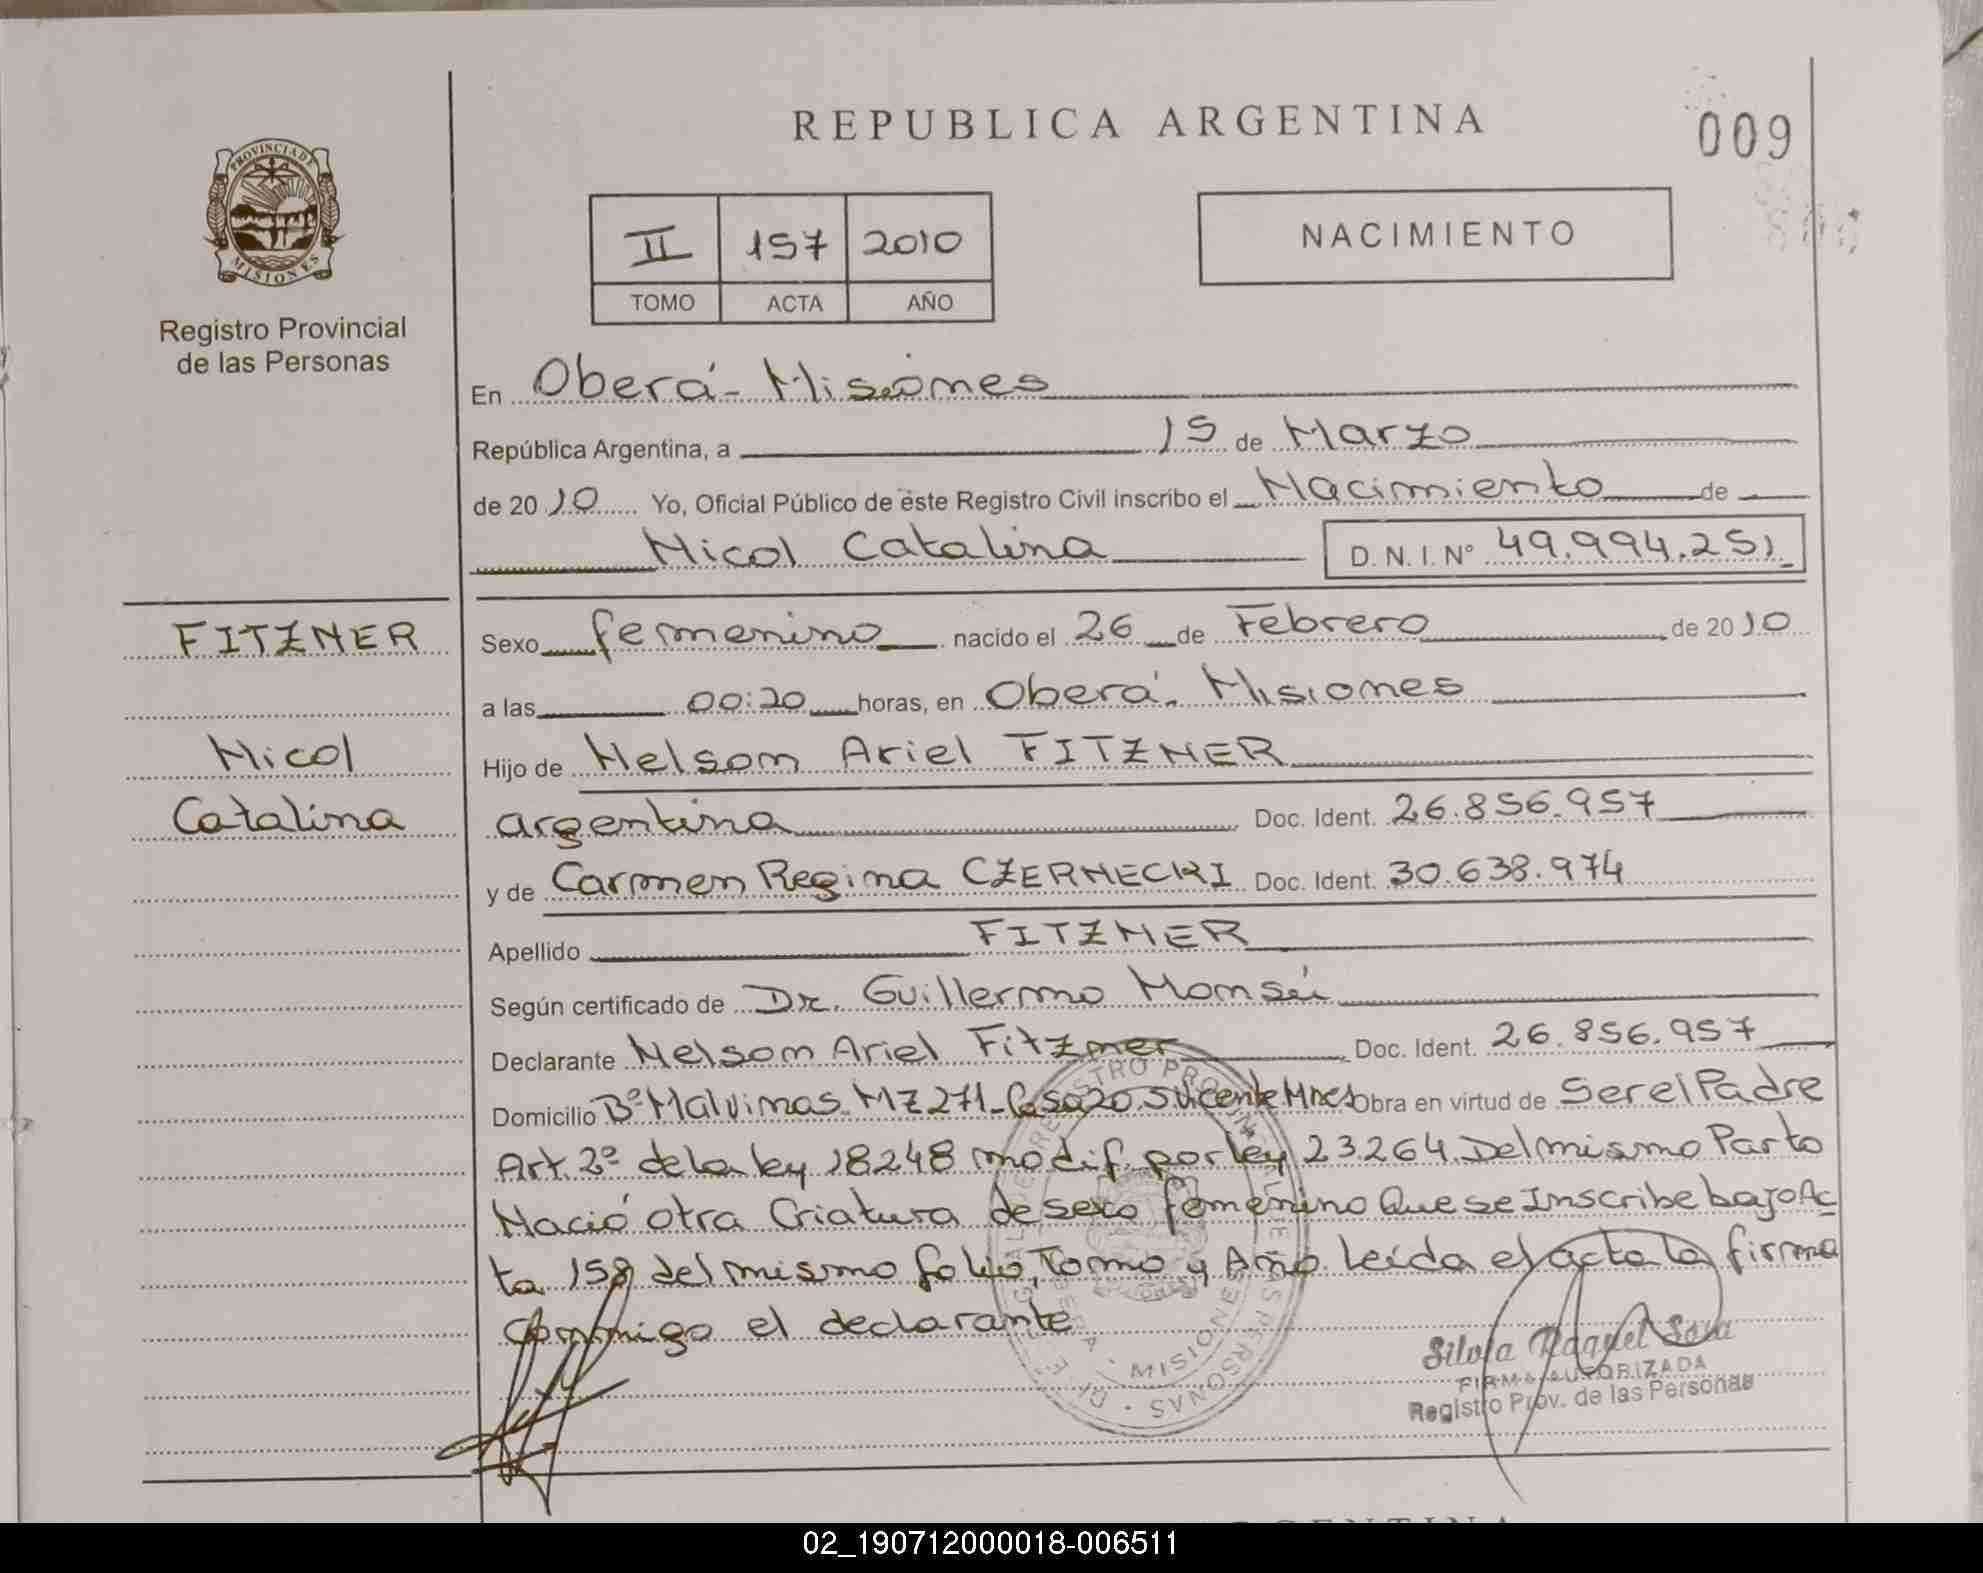 REPUBLICA ARGENTINA
009
PROVINCIA DE
MISIONES
Registro Provincial
de las Personas
II 157 2010
TOMO ACTA AÑO
NACIMIENTO
En Oberá - Misiones
República Argentina, a 15 de Marzo
de 2010 Yo, Oficial Público de este Registro Civil inscribo el Nacimiento de
Nicol Catalina D.N.I.Nº 49.994.251
FITZNER
Nicol
Catalina
Sexo femenino nacido el 26 de Febrero de 2010
a las 00:20 horas, en Oberá. Misiones
Hijo de Nelson Ariel FITZNER
argentina Doc. Ident. 26.856.957
y de Carmen Regina CZERNECKI Doc. Ident. 30.638.974
Apellido FITZNER
Según certificado de Dr. Guillermo
Declarante Nelson Ariel Fitzner Doc. Ident. 26.856.957
Domicilio Bº Malvinas MZ 271 - Casa 20. S. Vicente Mnes Obra en virtud de Ser el Padre
Art. 2º de la ley 18248 modif. por ley 23264. Del mismo Parto
Nació otra Criatura de sexo femenino Que se Inscribe bajo Ac
ta 158 del mismo folio, Tomo y Año. leída el acta la firma
conmigo el declarante
Silvia Raquel Sosa
FIRMA AUTORIZADA
Registro Prov. de las Personas
MISIONES
02_190712000018-006511